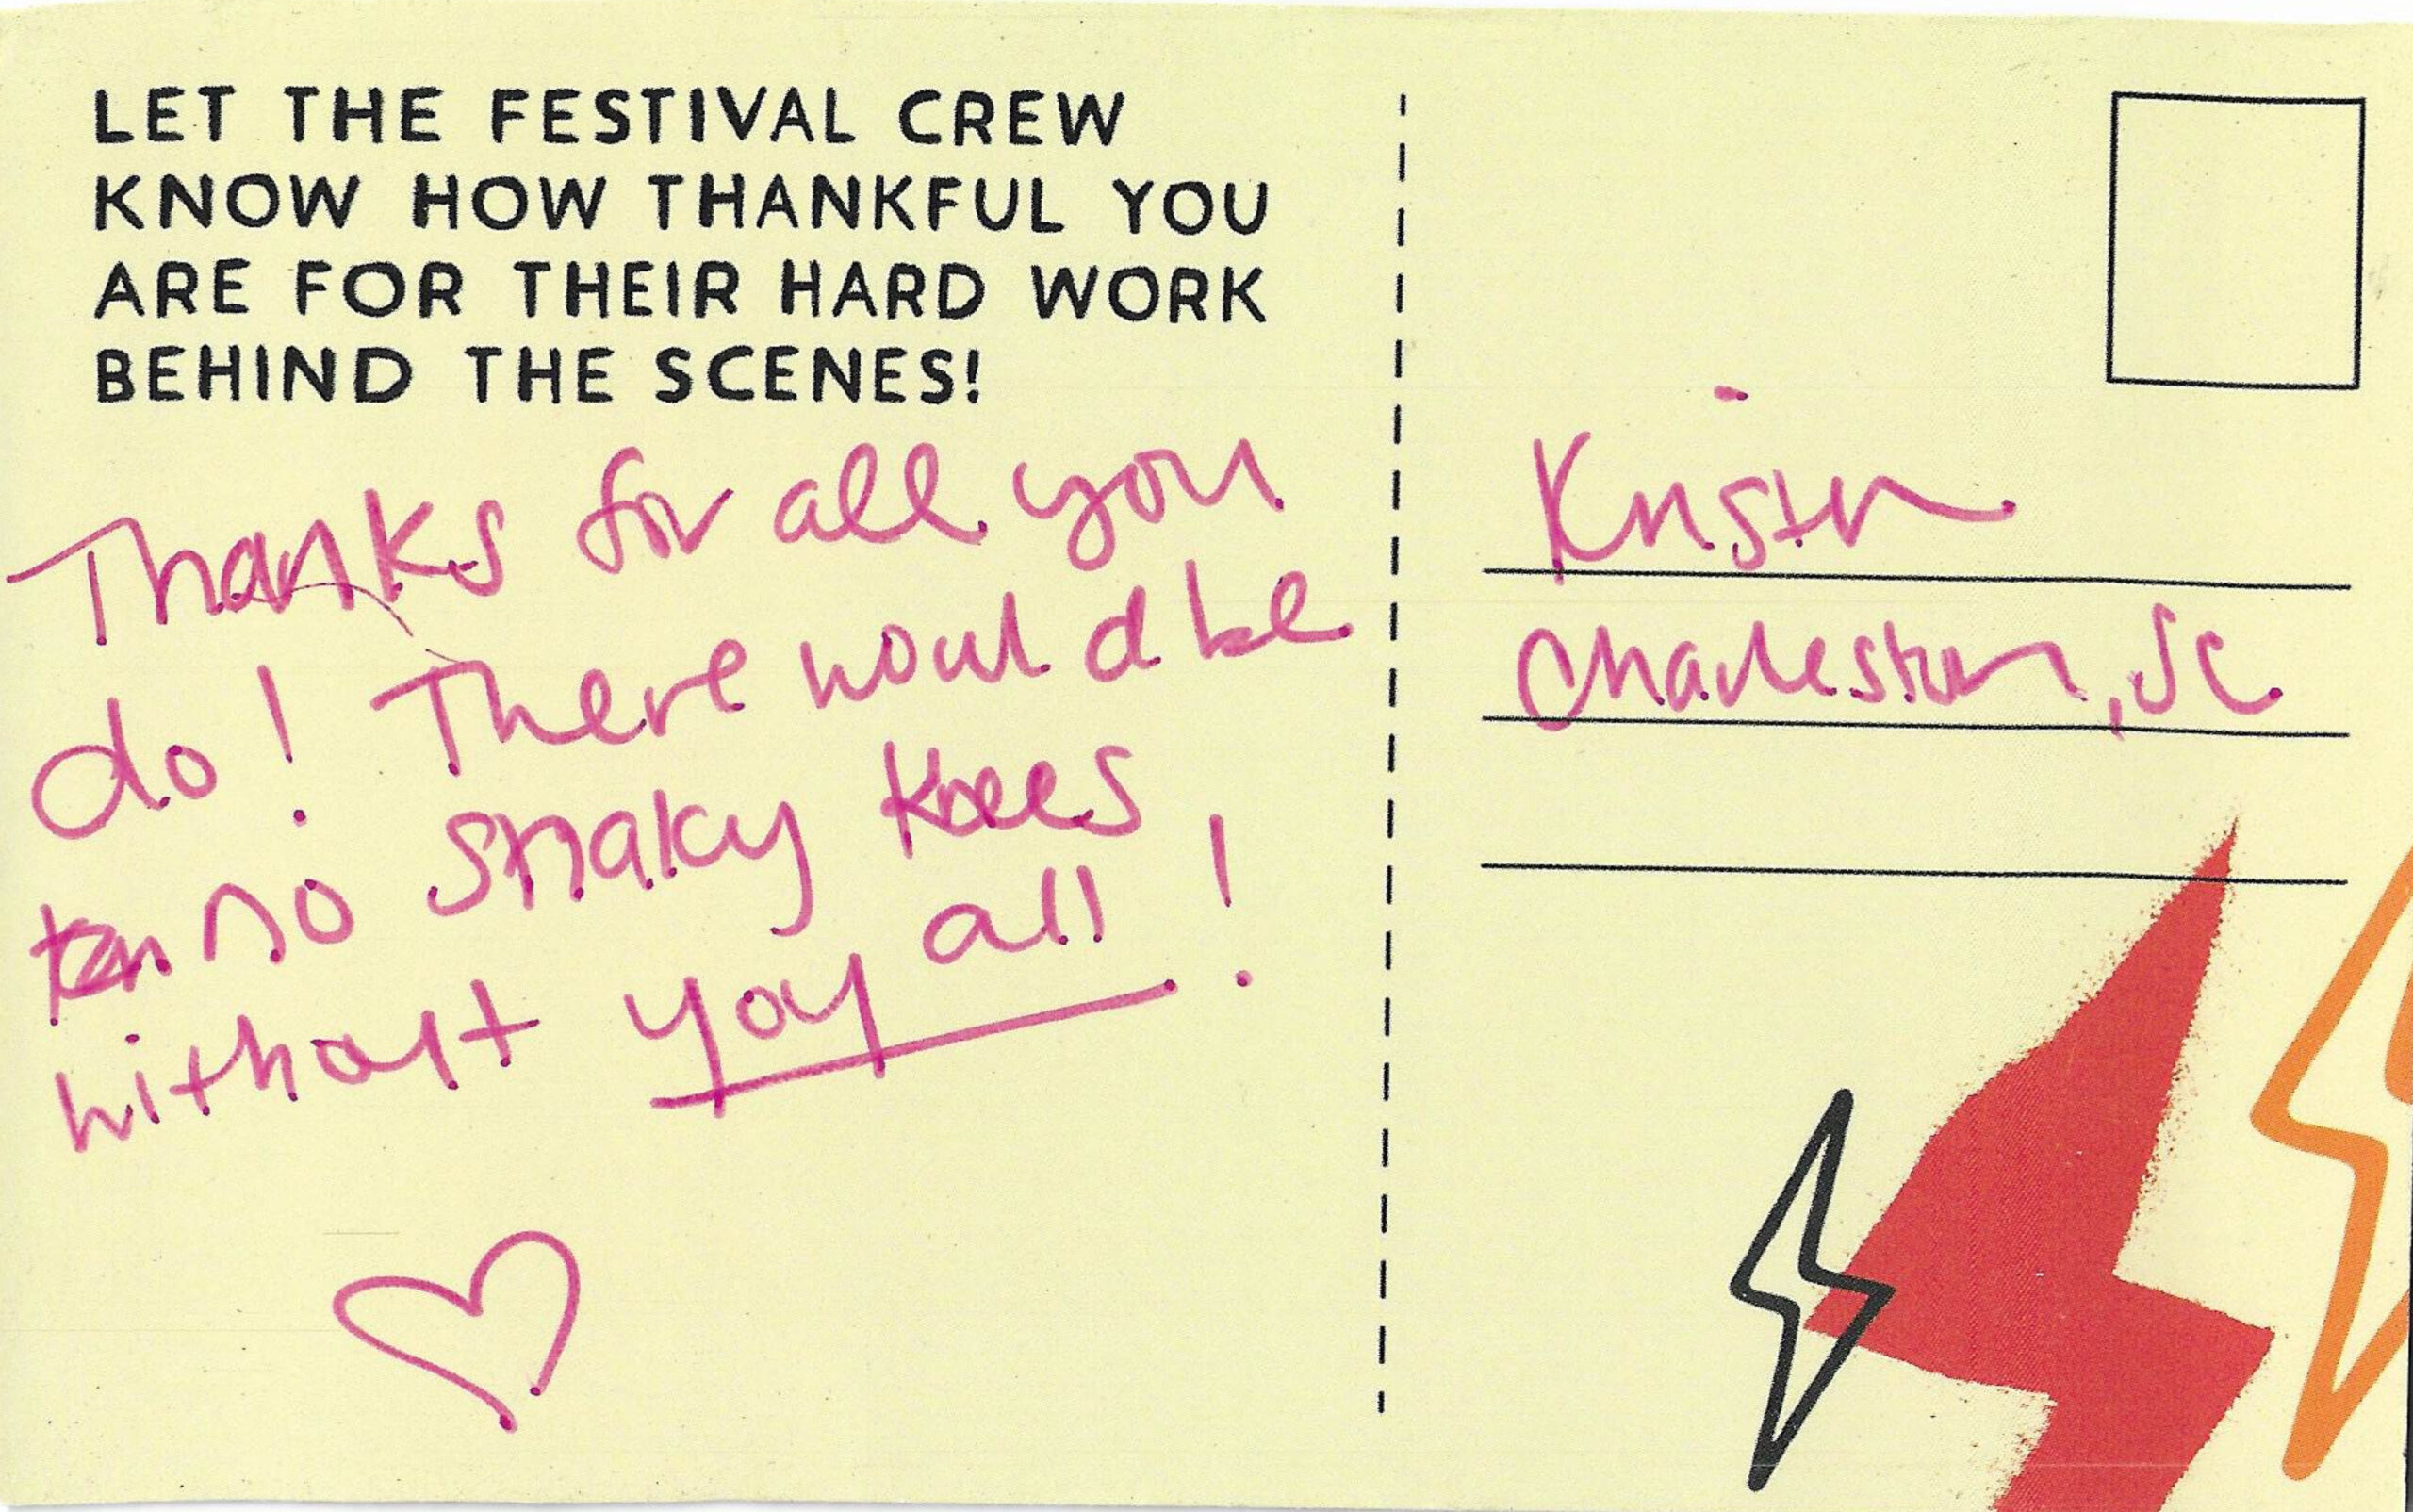 LET THE FESTIVAL CREW
KNOW HOW THANKFUL YOU
ARE FOR THEIR HARD WORK
BEHIND THE SCENES!
Thanks for all you
do! There would be
no shaky knees
without you all!
Kristin
Charleston, SC